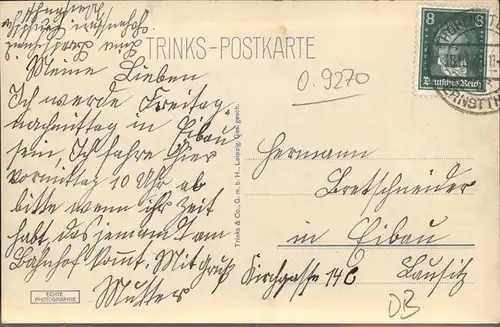 TRINKS-POSTKARTE
Meine Lieben
Ich werde Freitag
nachmittag in Eibau
sein, Ich fahre hier
vormittag 10 Uhr ab
bitte wenn ihr Zeit
habt, das jemand am
Bahnhof kommt. Mit Gruß
Mutter
ECHTE
PHOTOGRAPHIE
Trinks & Co., G. m. b. H., Leipzig. Ges. gesch.
O. 9270
8 8
Deutsches Reich
ERNSTTH
Hermann
Bretschneider
in Eibau
Kirchgasse 14c Lausitz
DB